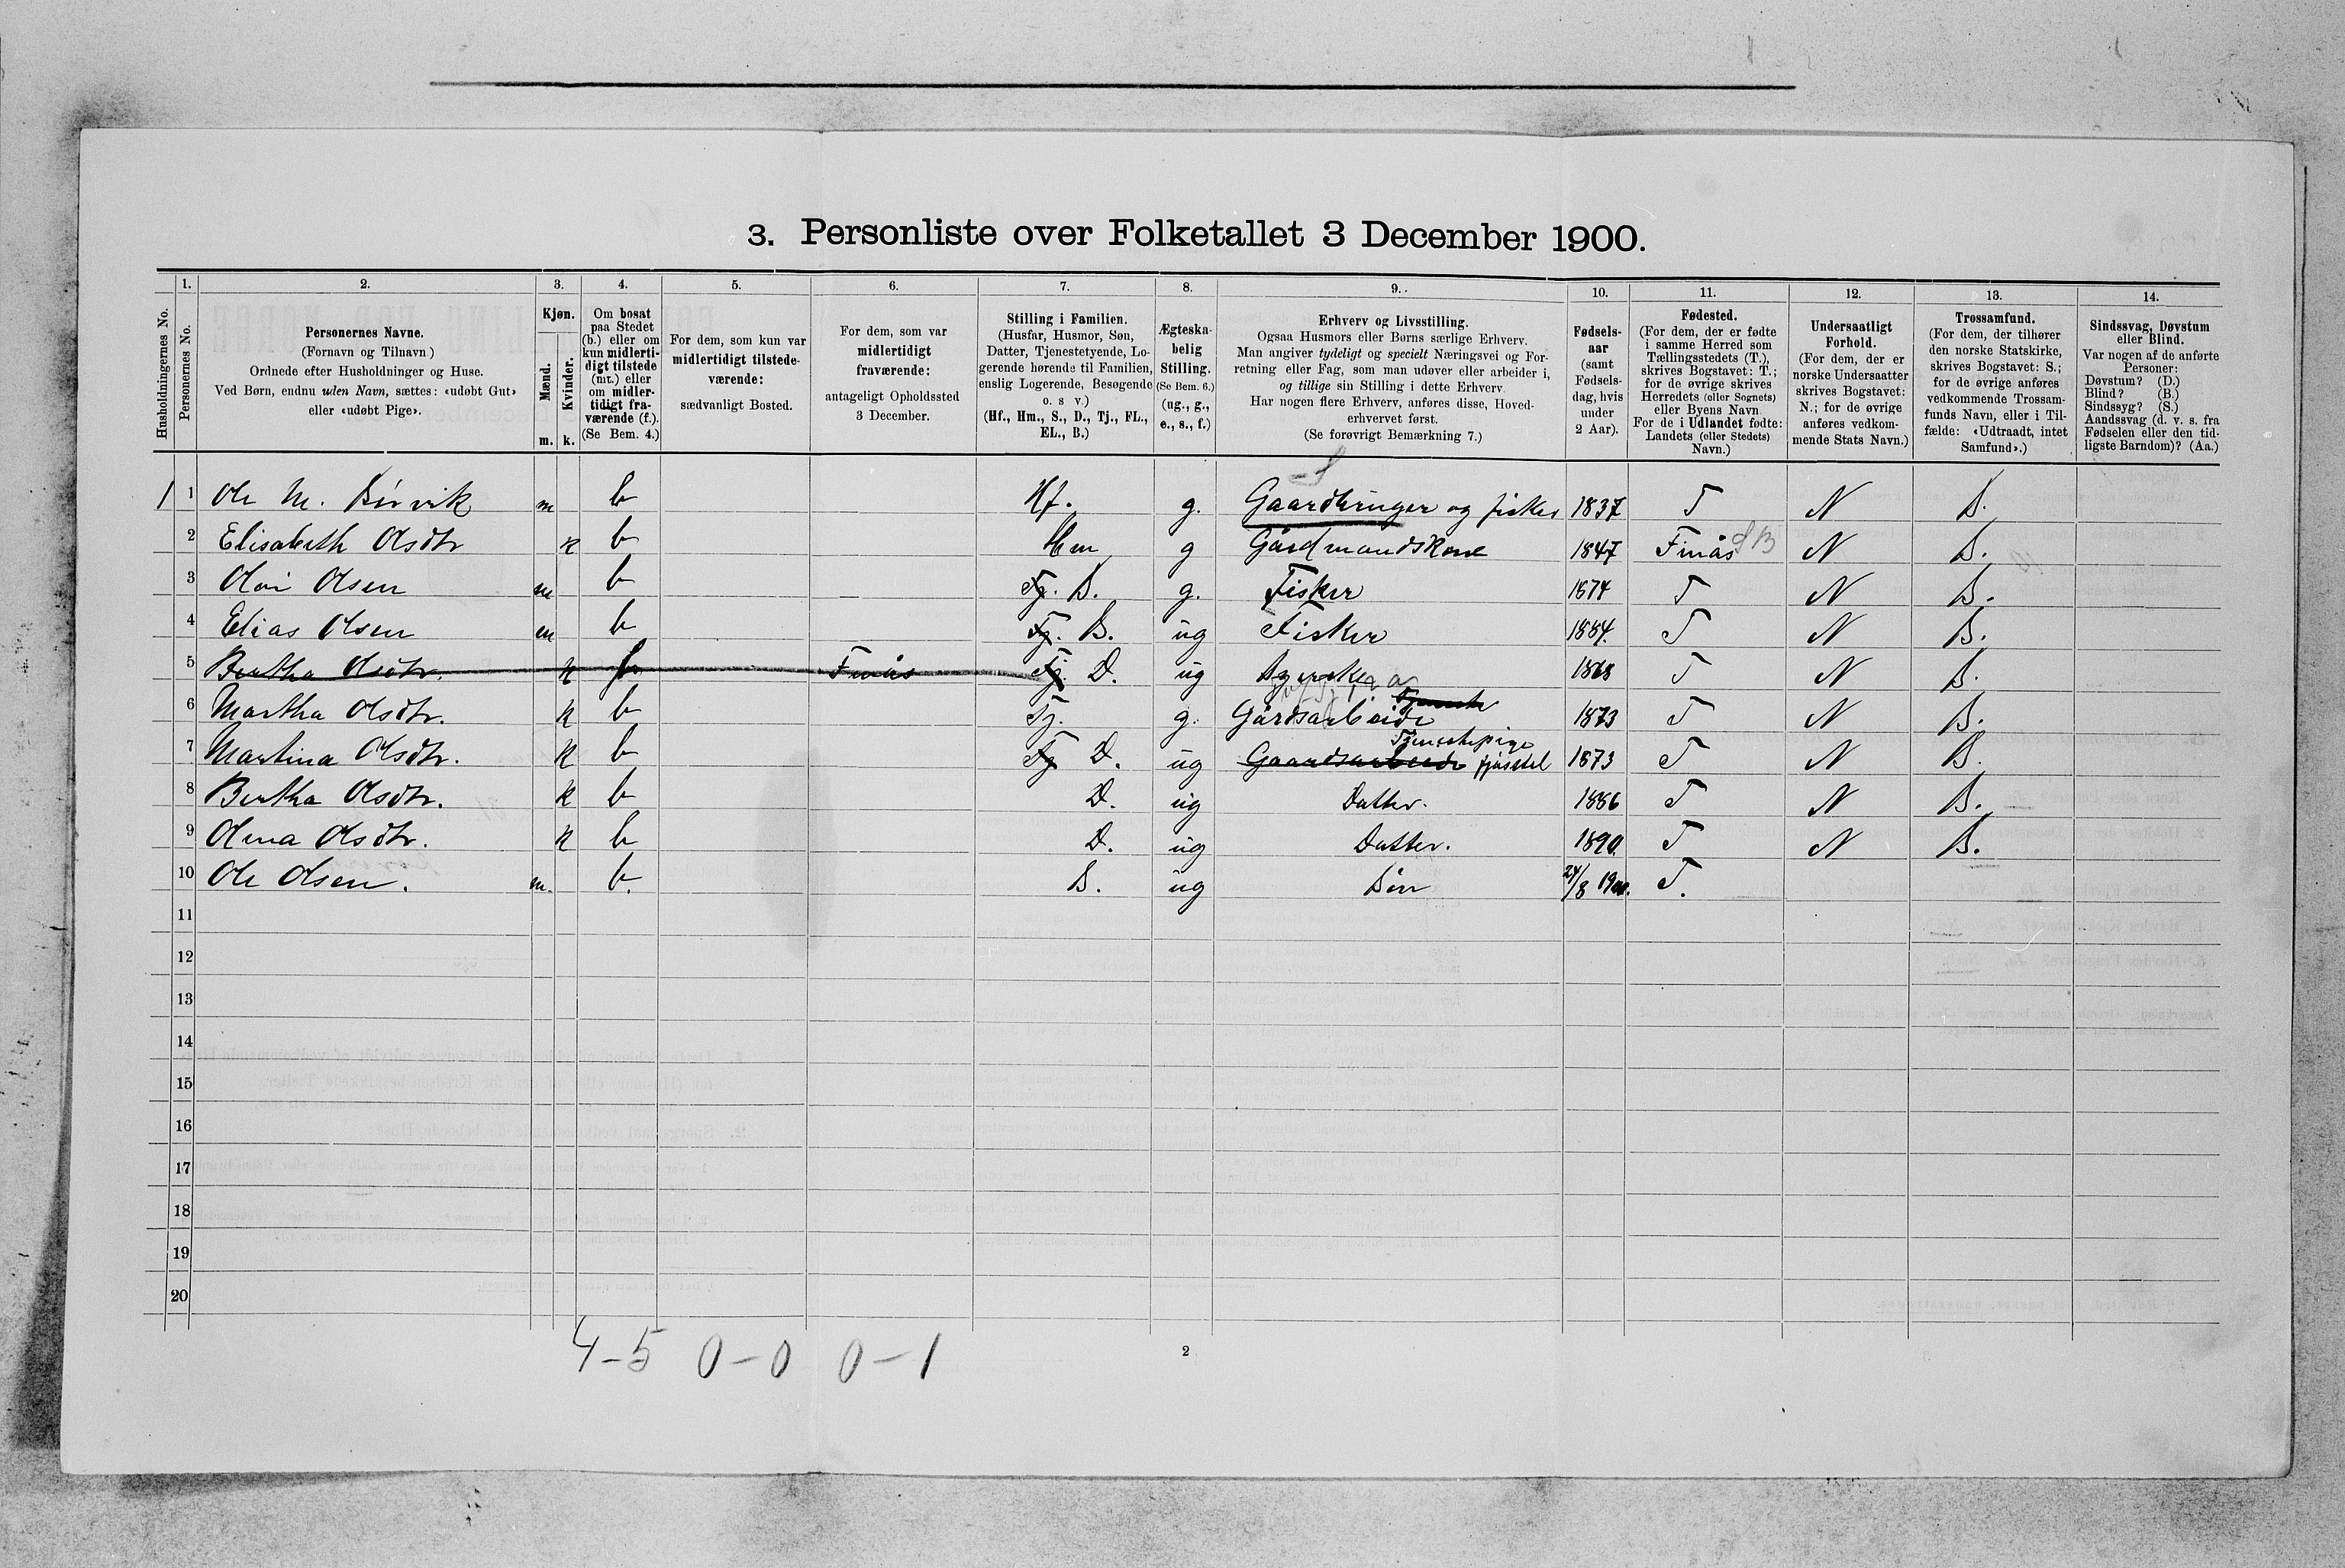 3. Personliste over Folketallet 3 December 1900.
Husholdningernes No.
1.
Personernes No.
2.
Personernes Navne.
(Fornavn og Tilnavn.)
Ordnede efter Husholdninger og Huse.
Ved Børn, endnu uden Navn, sættes: «udøbt Gut»
eller «udøbt Pige».
3.
Kjøn.
Mænd.
Kvinder.
m. k.
4.
Om bosat
paa Stedet
(b.) eller om
kun midlerti-
digt tilstede
(mt.) eller
om midler-
tidigt fra-
værende (f.).
(Se Bem. 4.)
5.
For dem, som kun var
midlertidigt tilstede-
værende:
sædvanligt Bosted.
6.
For dem, som var
midlertidigt
fraværende:
antageligt Opholdssted
3 December.
7.
Stilling i Familien.
(Husfar, Husmor, Søn,
Datter, Tjenestetyende, Lo-
gerende hørende til Familien,
enslig Logerende, Besøgende
o. s v.)
(Hf., Hm., S., D., Tj., FL.,
EL., B.)
8.
Ægteska-
belig
Stilling.
(Se Bem. 6.)
(ug., g.,
e., s., f.)
9.
Erhverv og Livsstilling.
Ogsaa Husmors eller Børns særlige Erhverv.
Man angiver tydeligt og specielt Næringsvei og For-
retning eller Fag, som man udøver eller arbeider i,
og tillige sin Stilling i dette Erhverv.
Har nogen flere Erhverv, anføres disse, Hoved-
erhvervet først.
(Se forøvrigt Bemærkning 7.)
10.
Fødsels-
aar
(samt
Fødsels-
dag, hvis
under
2 Aar).
11.
Fødested.
(For dem, der er fødte
i samme Herred som
Tællingsstedets (T.),
skrives Bogstavet: T.;
for de øvrige skrives
Herredets (eller Sognets)
eller Byens Navn.
For de i Udlandet fødte:
Landets (eller Stedets)
Navn.)
12.
Undersaatligt
Forhold.
(For dem, der er
norske Undersaatter
skrives Bogstavet:
N.; for de øvrige
anføres vedkom-
mende Stats Navn.)
13.
Trossamfund.
(For dem, der tilhører
den norske Statskirke,
skrives Bogstavet: S.;
for de øvrige anføres
vedkommende Trossam-
funds Navn, eller i Til-
fælde: «Udtraadt, intet
Samfund».)
14.
Sindssvag, Døvstum
eller Blind.
Var nogen af de anførte
Personer:
Døvstum? (D.)
Blind? (B.)
Sindssyg? (S.)
Aandssvag (d. v. s. fra
Fødselen eller den tid-
ligste Barndom)? (Aa.)
1 1 Ole M. m b Hf. g. Gaardbruger og fisker 1837 T N S.
2 Elisabeth Olsdtr k b Hm g Gårdmandskone 1847 Finås N S.
3 Olai Olsen m b Tj. S. g. Fisker 1874 T N S.
4 Elias Olsen m b Tj. S. ug Fisker 1884. T N S.
5 Bertha Olsdtr. k b Finås Tj. D. ug 1868 T N S.
6 Martha Olsdtr. k b Tj. g. Gårdsarbeide 1873 T N S.
7 Martina Olsdtr. k b Tj D. ug Gaardsarbeide Tjenestepige fjøsstel 1873 T N S.
8 Bertha Olsdtr. k b D. ug Datter. 1886 T N S.
9 Olina Olsdtr. k b D. ug Datter. 1890. T N S.
10 Ole Olsen. m. b. S. ug Søn 24/8 1900. T.
11
12
13
14
15
16
17
18
19
20
4-5 0-0 0-1
2